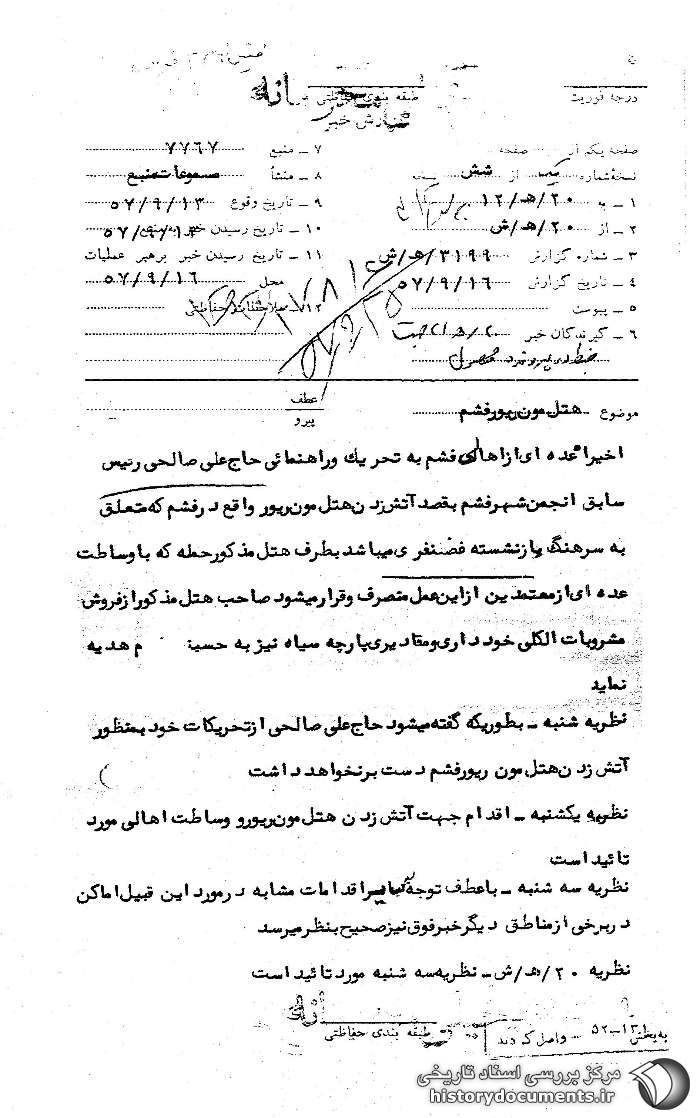 درجه فوریت
طبقه بندی حفاظتی
گزارش خبر
صفحه یکم از صفحه
نسخه شماره یک از شش نسخه
۱ ـ به ۲۰/هـ/۱۲
۲ ـ از ۲۰/هـ/ش
۳ ـ شماره گزارش ۳۱۹۹/هـ/ش
۴ ـ تاریخ گزارش ۵۷/۹/۱۶
۵ ـ پیوست
۶ ـ گیرندگان خبر
۷ ـ منبع ۷۷۶۷
۸ ـ منشأ مسموعات منبع
۹ ـ تاریخ وقوع ۵۷/۹/۱۳
۱۰ ـ تاریخ رسیدن خبر به منبع ۵۷/۹/۱۳
۱۱ ـ تاریخ رسیدن خبر برهبر عملیات
محل ۵۷/۹/۱۶
۱۲ ـ ملاحظات حفاظتی
موضوع هتل مون ریور فشم
عطف
پیرو
اخیرا عده ای از اهالی فشم به تحریک و راهنمائی حاج علی صالحی رئیس
سابق انجمن شهر فشم بقصد آتش زدن هتل مون ریور واقع در فشم که متعلق
به سرهنگ بازنشسته غضنفری میباشد بطرف هتل مذکور حمله که با وساطت
عده ای از معتمدین از این عمل منصرف و قرار میشود صاحب هتل مذکور از فروش
مشروبات الکلی خود داری و مقادیری پارچه سیاه نیز به هدیه
نماید
نظریه شنبه ـ بطوریکه گفته میشود حاج علی صالحی از تحریکات خود بمنظور
آتش زدن هتل مون ریور فشم دست بر نخواهد داشت
نظریه یکشنبه ـ اقدام جهت آتش زدن هتل مون ریور و وساطت اهالی مورد
تائید است
نظریه سه شنبه ـ با عطف توجه بسایر اقدامات مشابه در مورد این قبیل اماکن
در برخی از مناطق دیگر خبر فوق نیز صحیح بنظر میرسد
نظریه ۲۰/هـ/ش ـ نظریه سه شنبه مورد تائید است
طبقه بندی حفاظتی
به بخش ۱۳ـ۵۲ واصل گردید
مرکز بررسی اسناد تاریخی
historydocuments.ir